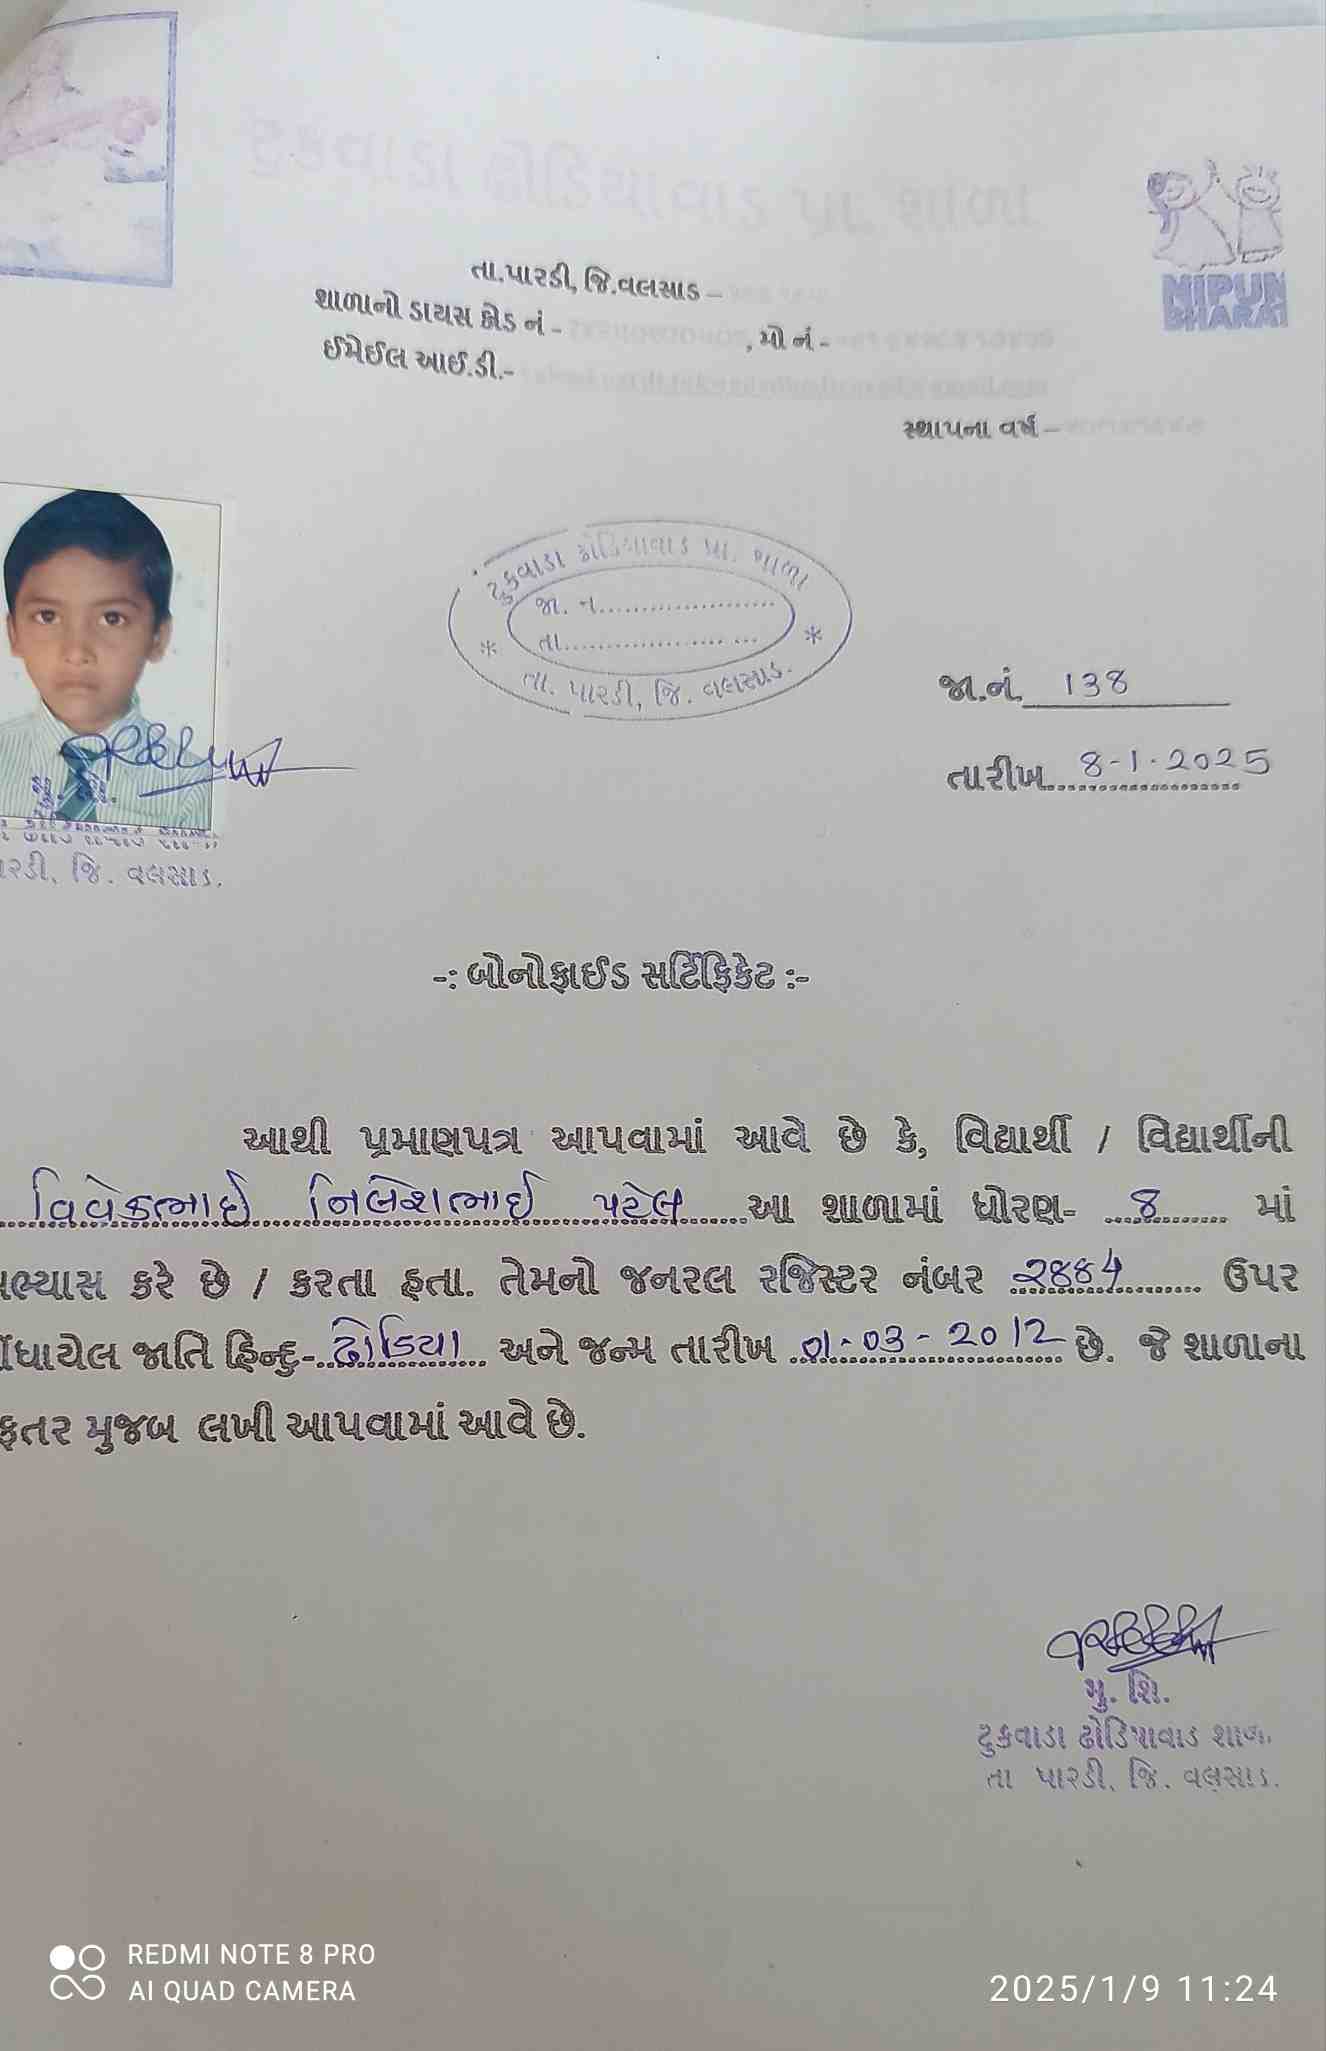 ટુકવાડા ઢોડિયાવાડ પ્રા. શાળા
NIPUN
BHARAT
તા.પારડી, જિ.વલસાડ –
શાળાનો ડાયસ કોડ નં - , મો નં -
ઈમેઈલ આઈ.ડી.-
સ્થાપના વર્ષ –
ટુકવાડા ઢોડિયાવાડ પ્રા. શાળા
જા. ન......................
તા......................
* તા. પારડી, જિ. વલસાડ. *
જા.નં. 138
તારીખ 8-1-2025
જિ. વલસાડ.
-: બોનોફાઈડ સર્ટિફિકેટ :-
આથી પ્રમાણપત્ર આપવામાં આવે છે કે, વિદ્યાર્થી / વિદ્યાર્થીની
વિવેકભાઈ નિલેશભાઈ પટેલ આ શાળામાં ધોરણ- 8 માં
કરે છે / કરતા હતા. તેમનો જનરલ રજિસ્ટર નંબર 2884 ઉપર
જાતિ હિન્દુ- ઢોડિયા અને જન્મ તારીખ 01-03-2012 છે. જે શાળાના
મુજબ લખી આપવામાં આવે છે.
મુ. શિ.
ટુકવાડા ઢોડિયાવાડ શાળા
તા પારડી, જિ. વલસાડ.
REDMI NOTE 8 PRO
AI QUAD CAMERA
2025/1/9 11:24